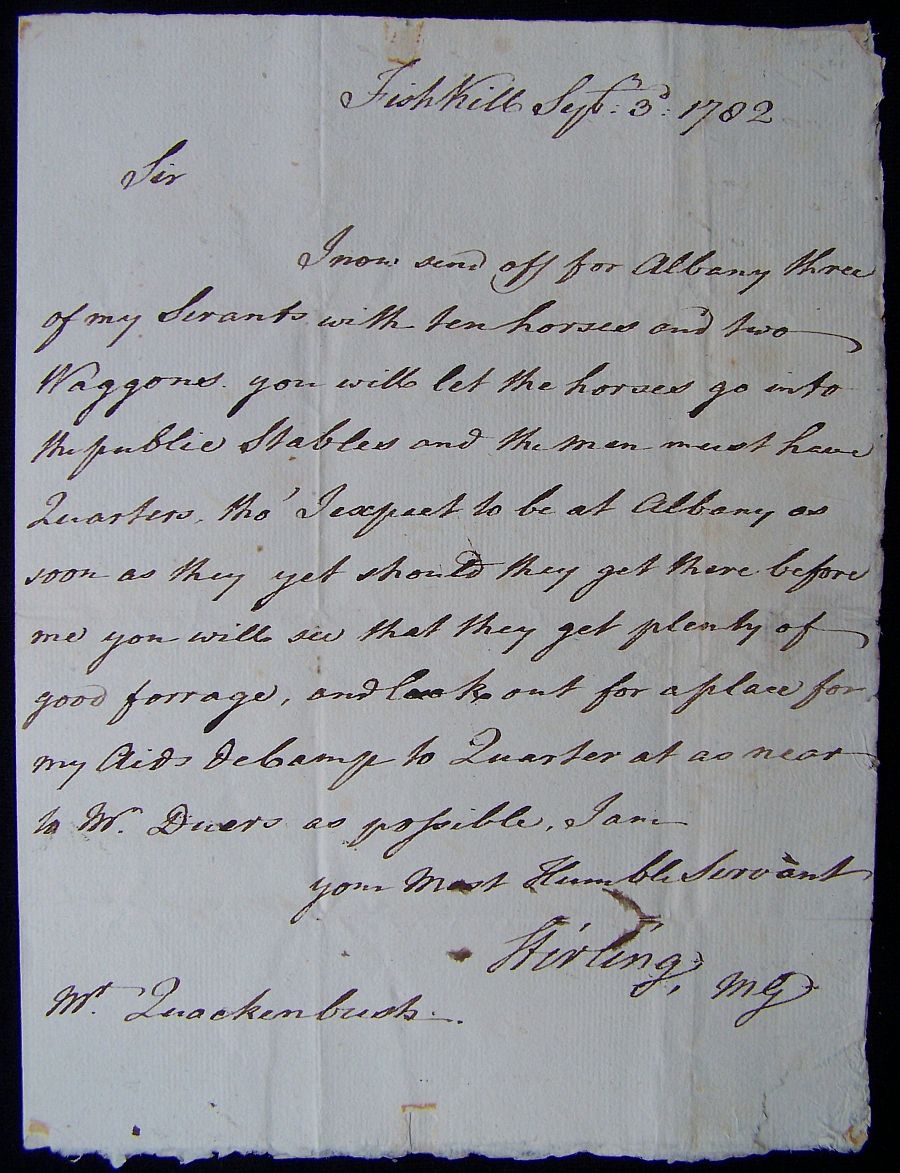 FishKill Sepr. 3d. 1782
Sir
I now send off for Albany three
of my Servants with ten horses and two
Waggons. you will let the horses go into
the public Stables and the men must have
Quarters, tho' I expect to be at Albany as
soon as they yet should they get there before
me you will see that they get plenty of
good forrage, and look out for a place for
my Aids deCamp to Quarter at as near
to Mr. Duers as possible, I am
your Most Humble Servant
Stirling, MG
Mr. Quackenbush.